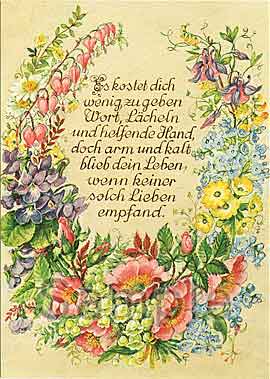 Es kostet dich
wenig, zu geben
Wort, Lächeln
und helfende Hand,
doch arm und kalt
blieb dein Leben,
wenn keiner
solch Lieben
empfand.